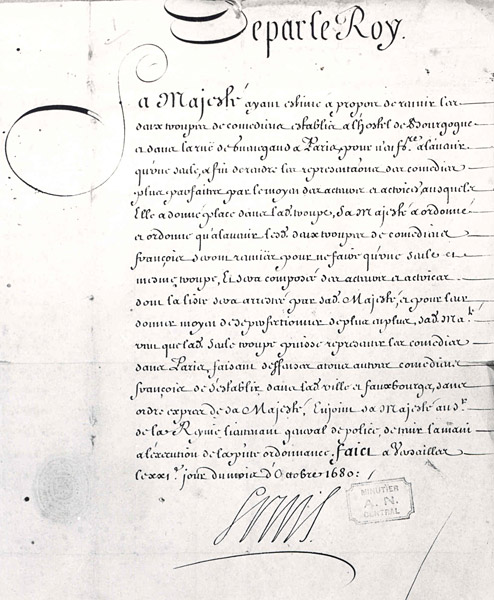 De par le Roy.
Sa Majesté ayant estimé a propos de reunir les
deux troupes de comediens establis a l'hostel de Bourgogne
et dans la rüe de Guenegaud a Paris, pour n'en fre. a l'avenir
qu'vne seule, afin de rendre les representãons des comedies
plus parfaittes par le moyen des acteurs et actrices ausquels
Elle a donné place dans lad. troupe, Sa Majesté a ordonné
et ordonne qu'alavenir lesd. deux troupes de comediens
françois seront reunies pour ne faire qu'vne seule et
mesme troupe, Et sera composée des acteurs et actrices
dont la liste sera arrestée par sad. Majesté, et pour leur
donner moyen de se perfectionner de plus en plus, sad. Maté.
veut que lad. seule troupe puisse representer les comedies
dans Paris, faisant deffenses a tous autres comediens
françois de s'establir dans lad. ville et fauxbourgs, sans
ordre expres de sa Majesté. Enjoint sa Majesté au Sr.
de la Reynie, lieutenant gñeral de police, de tenir la main
a l'execution de la pñte ordonnance. Faict a Versailles
le xxi.e jour du mois d'Octobre 1680:
Louis
MINUTIER
A. N.
CENTRAL